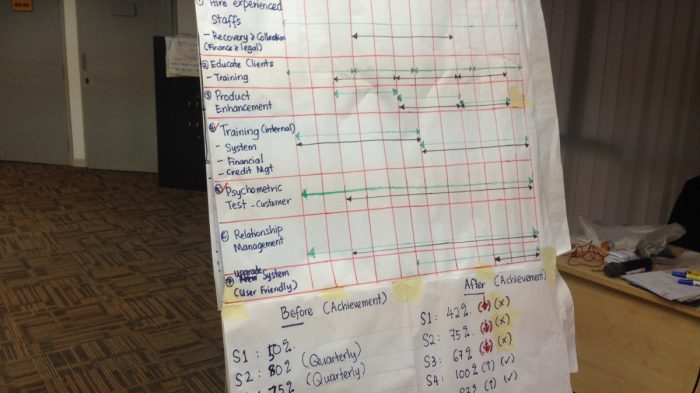 ① Hire experienced
Staffs
- Recovery & Collection
(Finance & legal)
② Educate Clients
- Training
③ Product
Enhancement
④ Training (internal)
- System
- Financial
- Credit Mgt
⑤ Psychometric
Test - Customer
⑥ Relationship
Management
upgrade
⑦ System
(User Friendly)
Before (Achievement)
S1: 50%
S2: 80% (Quarterly)
75% (Quarterly)
After (Achievement)
S1: 42% (↓) (x)
S2: 75% (↓) (x)
S3: 67% (↓) (x)
S4: 100% (↑) (✓)
(↑) (✓)